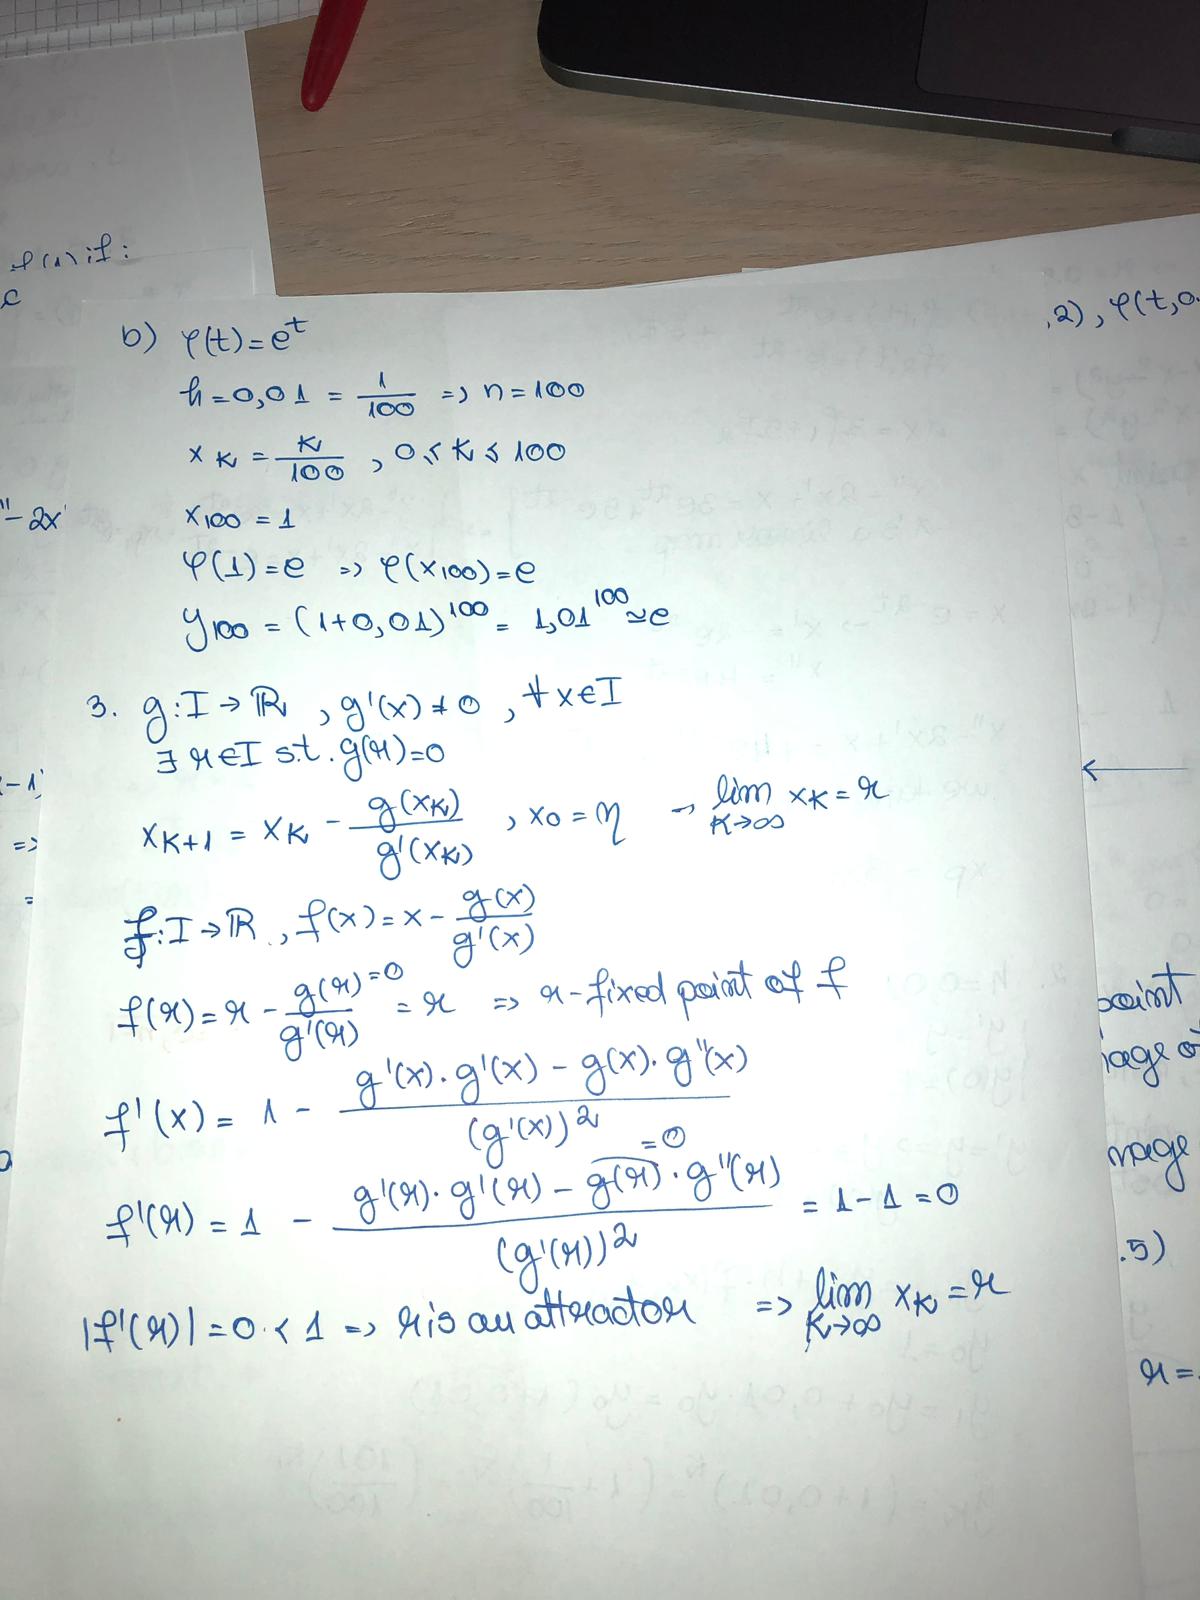 f(x) if:
c
"-2x'
-1)
=>
=
b) φ(t)=e^t
h=0,01 = 1/100 => n=100
x_K = K/100 , 0≤K≤100
x_100 = 1
φ(1)=e => φ(x_100)=e
y_100 = (1+0,01)^100 = 1,01^100 ≃e
3. g:I→ℝ , g'(x)≠0 , ∀x∈I
∃ r∈I s.t. g(r)=0
x_K+1 = x_K - g(x_K)/g'(x_K) , x_0=η → lim K→∞ x_K=r
f:I→ℝ , f(x)=x- g(x)/g'(x)
f(r)=r - g(r)=0/g'(r) = r => r-fixed point of f
f'(x)= 1 - (g'(x)·g'(x) - g(x)·g''(x))/(g'(x))^2
f'(r)=1 - (g'(r)·g'(r) - g(r)=0·g''(r))/(g'(r))^2 = 1-1=0
|f'(r)|=0<1 => r is an attractor => lim K→∞ x_K=r
,2), φ(t,0.
point
mage
.5)
r=